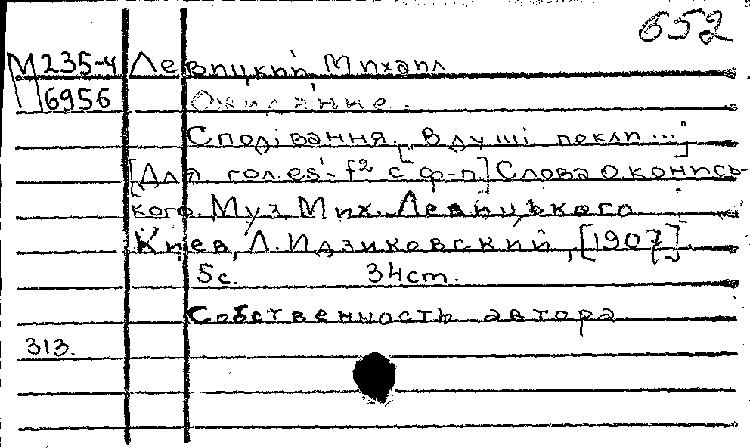 652
М235-4 Левицкий Михаил
6956 Ожидание.
Сподівання. [„В душі пекли..."]
[Для гол. es'-f² с ф-п] Слова О. Конись-
кого. Муз. Мих. Левицького
Киев, Л. Идзиковский, [1907].
5с. 34cm.
Собственность автора
313.